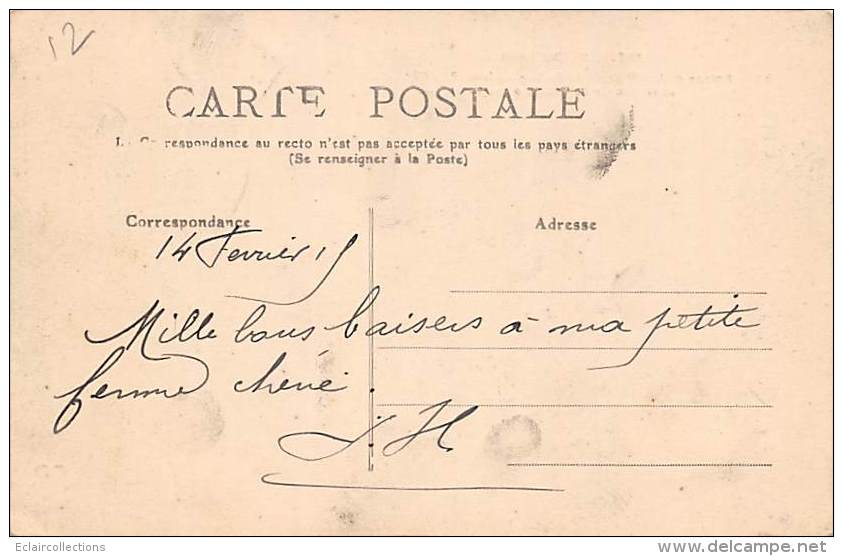 12
CARTE POSTALE
La Correspondance au recto n'est pas acceptée par tous les pays étrangers
(Se renseigner à la Poste)
Correspondance
Adresse
14 Fevrier 15
Mille bons baisers à ma petite
femme chérie.
J. H
Eclaircollections
www.delcampe.net